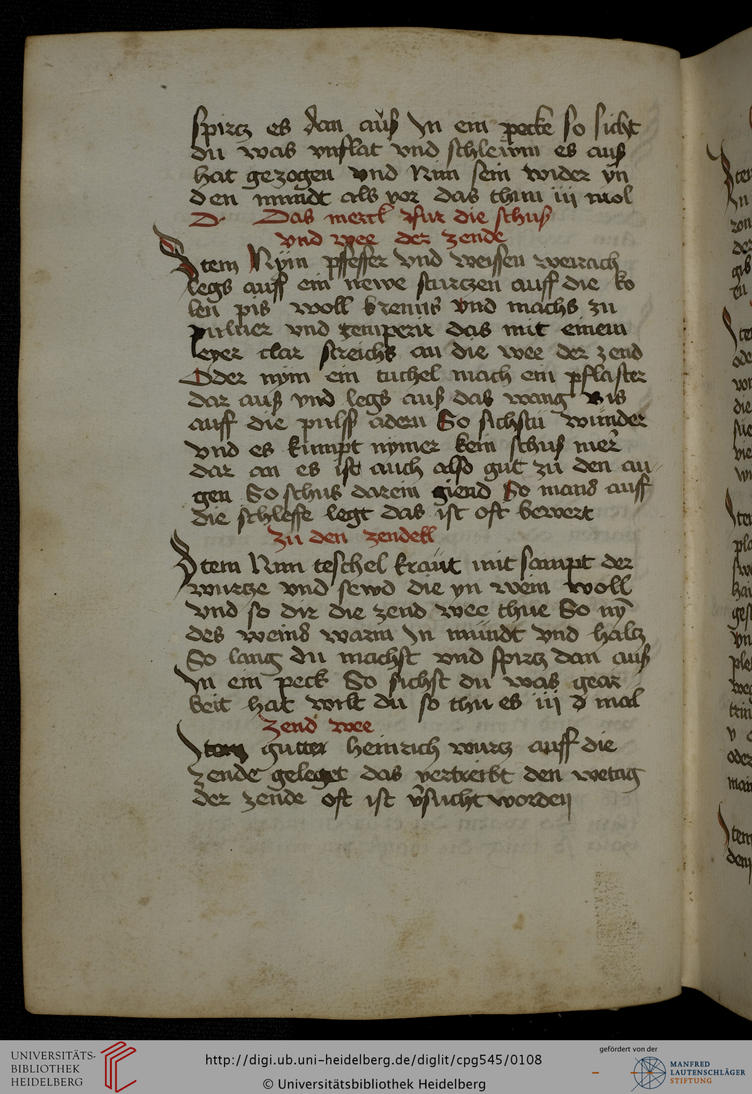 spirtz es dan auß Jn ein pecke so sicht
du was vnflat vnd schleymm es auß
hat gezogen vnd Nim sein wider yn
den mundt als vor das thun iij mol
D Das merck fur die schus
vnd wee der zende
Jtem Nym pfeffer vnd weissen weirach
legs auff ein newe sturczen auff die ko
len pis woll krenns vnd machs zu
puluer vnd temperir das mit einem
eyer clar streichs an die wee der zend
Oder nym ein tuchel mach ein pflaster
dar auß vnd legs auß das wang vis
auff die pulss adern So sichstu wunder
vnd es kumpt nymer kein schus mer
dar an es ist auch also gut zu den au
gen So schus darein giend So mans auff
die schleffe legt das ist oft bewert
Zu den zendell
Jtem Nim teschel kraut mit sampt der
wurtze vnd sewd die yn wein woll
vnd so dir die zend wee thue So ny
des weins warm Jn mundt vnd haltz
So lang du machst vnd spirtz dan auß
Jn ein peck So sichst du was gear
beit hat wilt du so thu es iij d mal
Zend wee
Jtem gutter heinrich wurtz auff die
zende geleget das vertreibt den wetag
der zende oft ist v̔sucht worden
UNIVERSITÄTS-
BIBLIOTHEK
HEIDELBERG
http://digi.ub.uni-heidelberg.de/diglit/cpg545/0108
© Universitätsbibliothek Heidelberg
gefördert von der
MANFRED
LAUTENSCHLÄGER
STIFTUNG